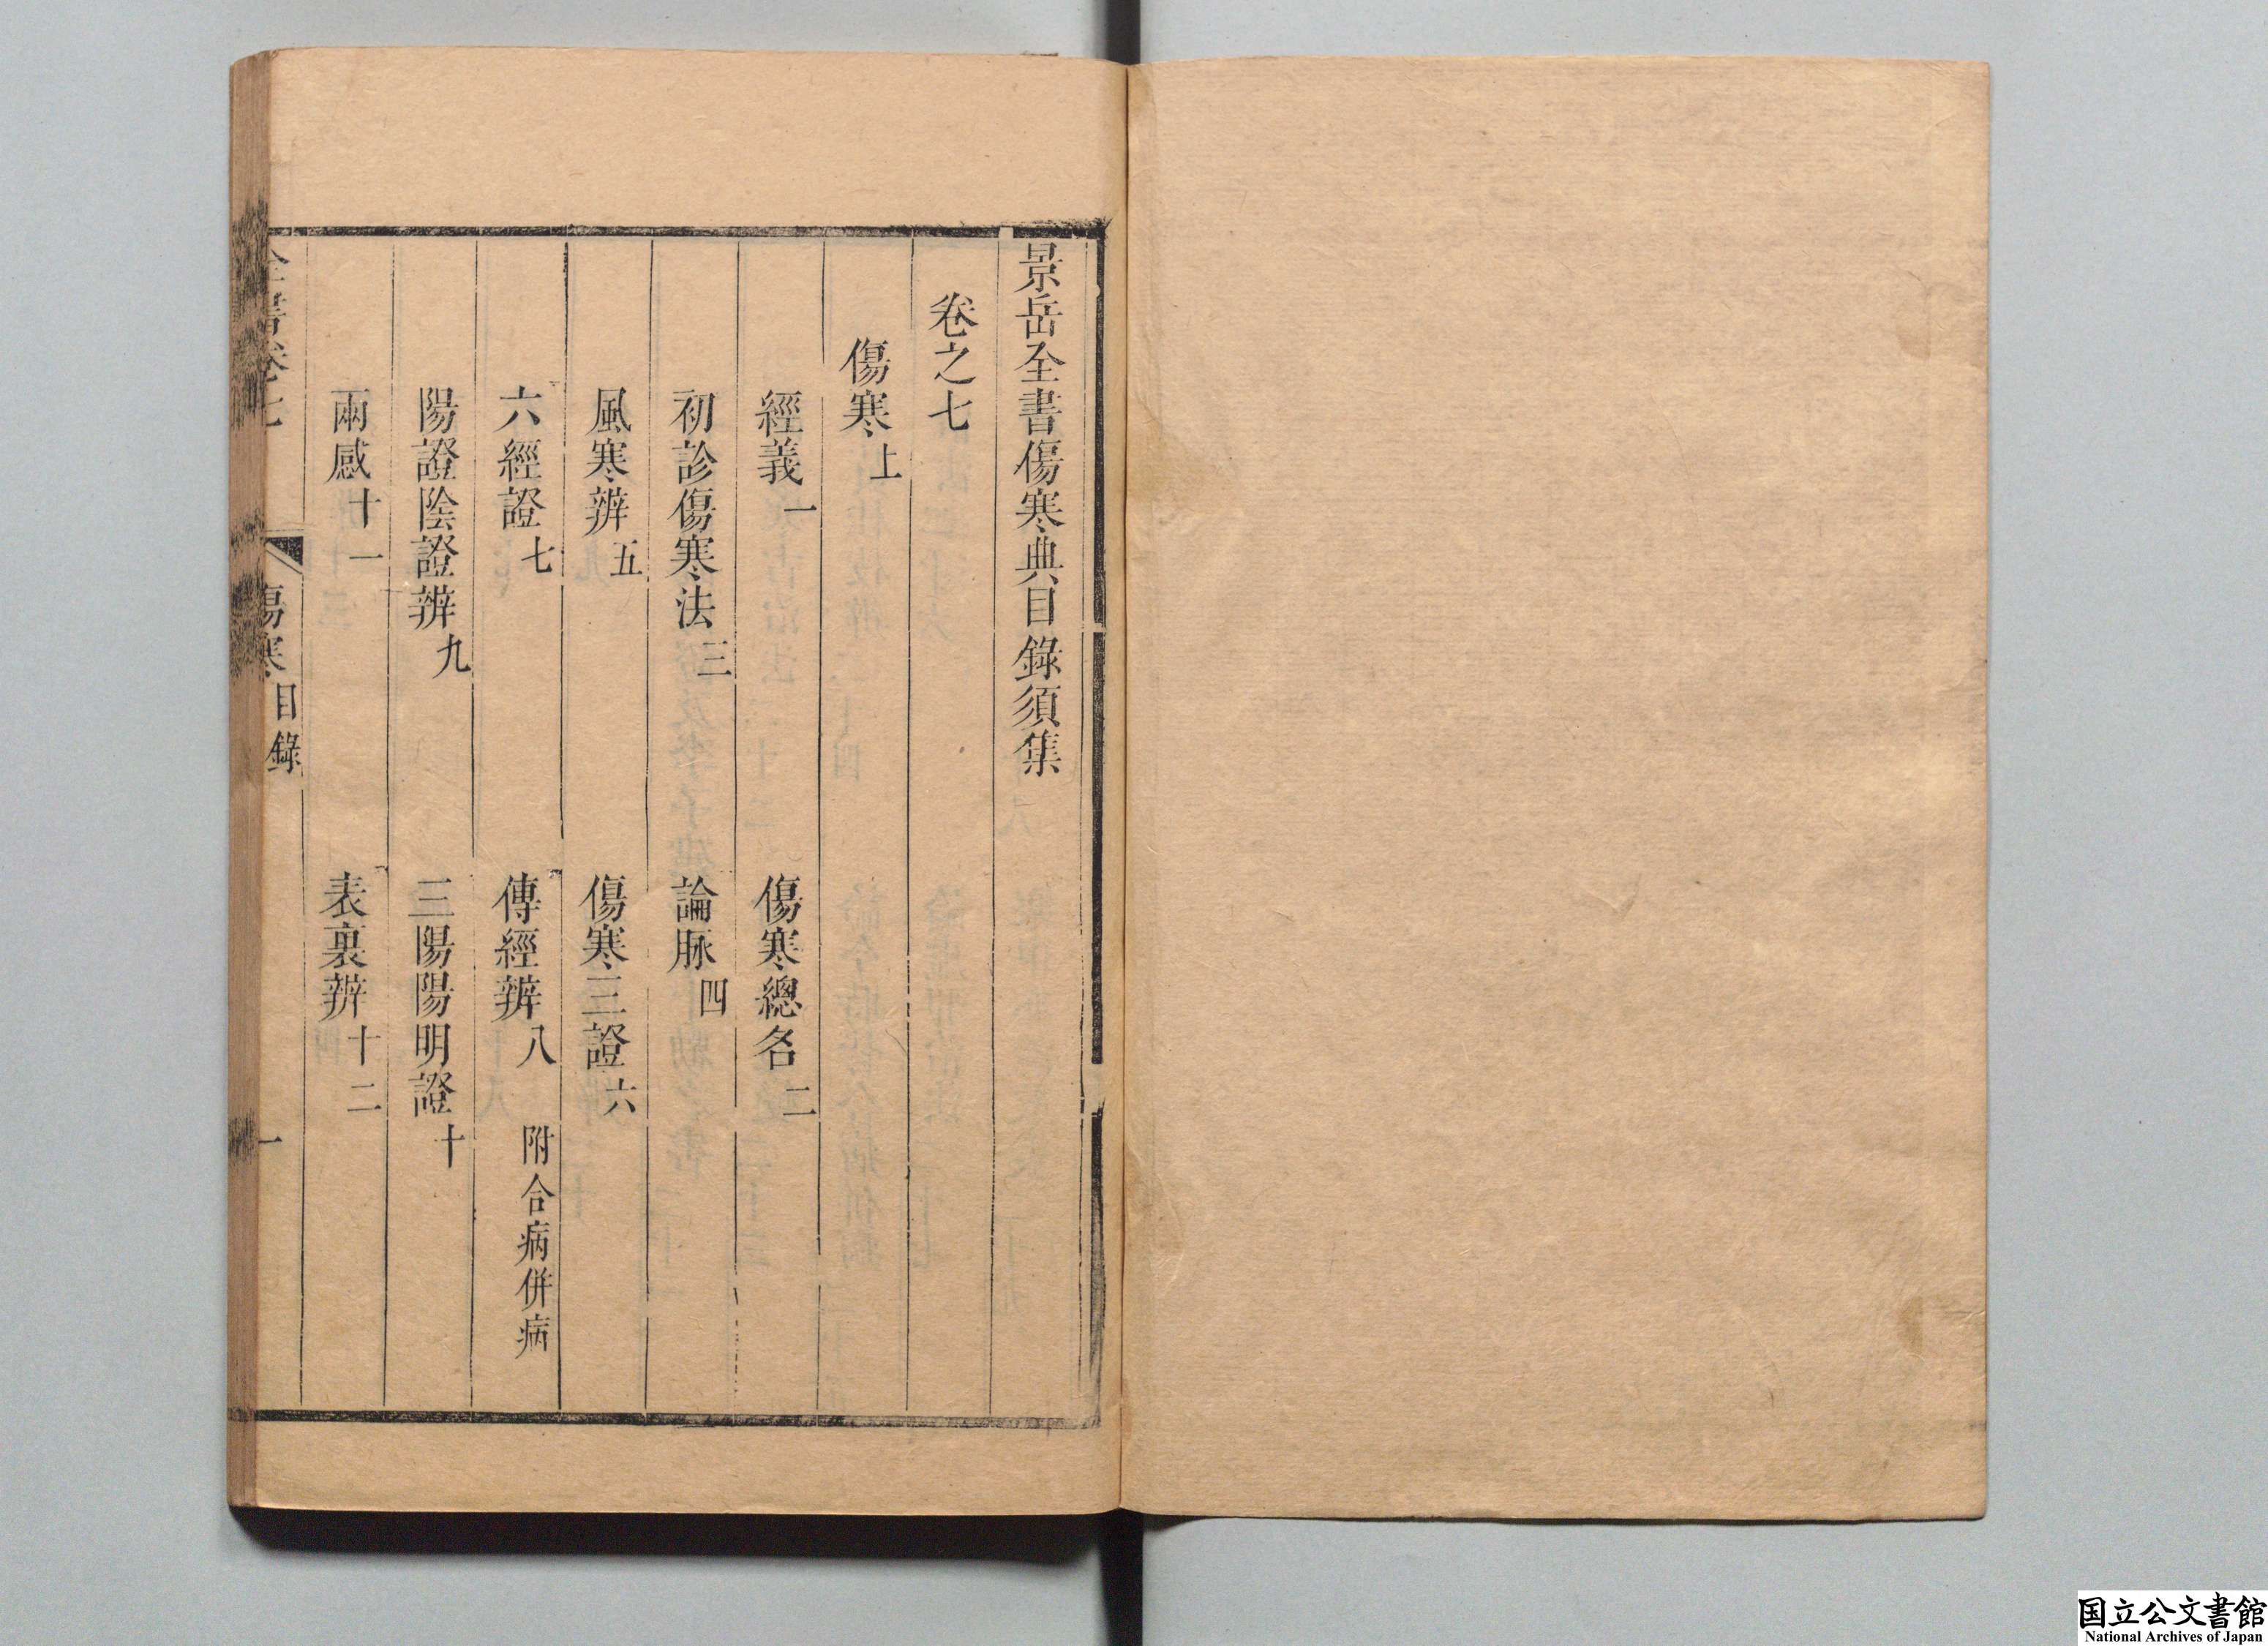 景岳全書傷寒典目錄須集
卷之七
傷寒上
經義一　傷寒總名二
初診傷寒法三　論脉四
風寒辨五　傷寒三證六
六經證七　傳經辨八　附合病併病
陽證陰證辨九　三陽陽明證十
兩感十一　表裏辨十二
全書卷七　傷寒目錄　一
国立公文書館
National Archives of Japan